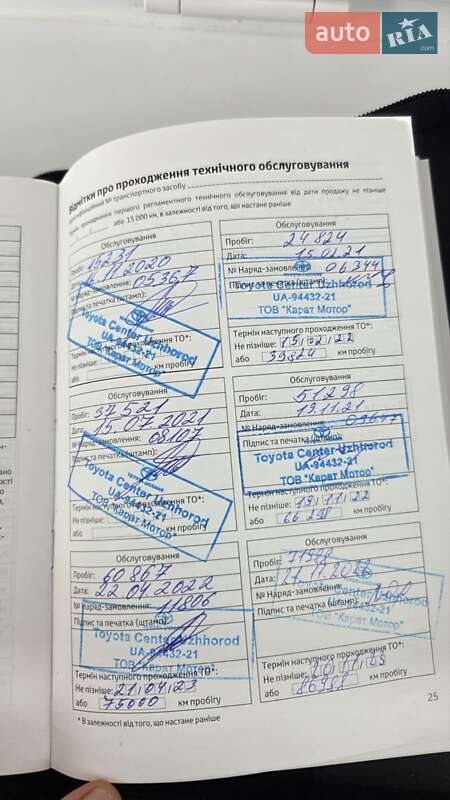 auto RIA .com
Відмітки про проходження технічного обслуговування
Ідентифікаційний № транспортного засобу
Термін проходження першого регламентного технічного обслуговування від дати продажу не пізніше
або 15 000 км, в залежності від того, що настане раніше
Обслуговування
Пробіг: 15231
Дата: 11.2020
№ Наряд-замовлення: 05367
Підпис та печатка (штамп):
Toyota Center Uzhhorod
UA-94432-21
ТОВ "Карат Мотор"
Термін наступного проходження ТО*:
Не пізніше:
або км пробігу
Обслуговування
Пробіг: 24 824
Дата: 15.02.21
№ Наряд-замовлення: 06344
Підпис та печатка (штамп):
Toyota Center Uzhhorod
UA-94432-21
ТОВ "Карат Мотор"
Термін наступного проходження ТО*:
Не пізніше: 15.02.22
або 39824 км пробігу
Обслуговування
Пробіг: 37 521
Дата: 15.07.2021
№ Наряд-замовлення: 08107
Підпис та печатка (штамп):
Toyota Center Uzhhorod
UA-94432-21
ТОВ "Карат Мотор"
Термін наступного проходження ТО*:
Не пізніше:
або км пробігу
Обслуговування
Пробіг: 51298
Дата: 19.11.21
№ Наряд-замовлення:
Підпис та печатка (штамп):
Toyota Center Uzhhorod
UA-94432-21
ТОВ "Карат Мотор"
Термін наступного проходження ТО*:
Не пізніше: 19.11.22
або 66 298 км пробігу
Обслуговування
Пробіг: 60 867
Дата: 22.04.2022
№ Наряд-замовлення: 11806
Підпис та печатка (штамп):
Toyota Center Uzhhorod
UA-94432-21
ТОВ "Карат Мотор"
Термін наступного проходження ТО*:
Не пізніше: 21.04.23
або 75000 км пробігу
Обслуговування
Пробіг:
Дата:
№ Наряд-замовлення:
Підпис та печатка (штамп):
Toyota Center Uzhhorod
UA-94432-21
ТОВ "Карат Мотор"
Термін наступного проходження ТО*:
Не пізніше:
або 86988 км пробігу
* В залежності від того, що настане раніше
25